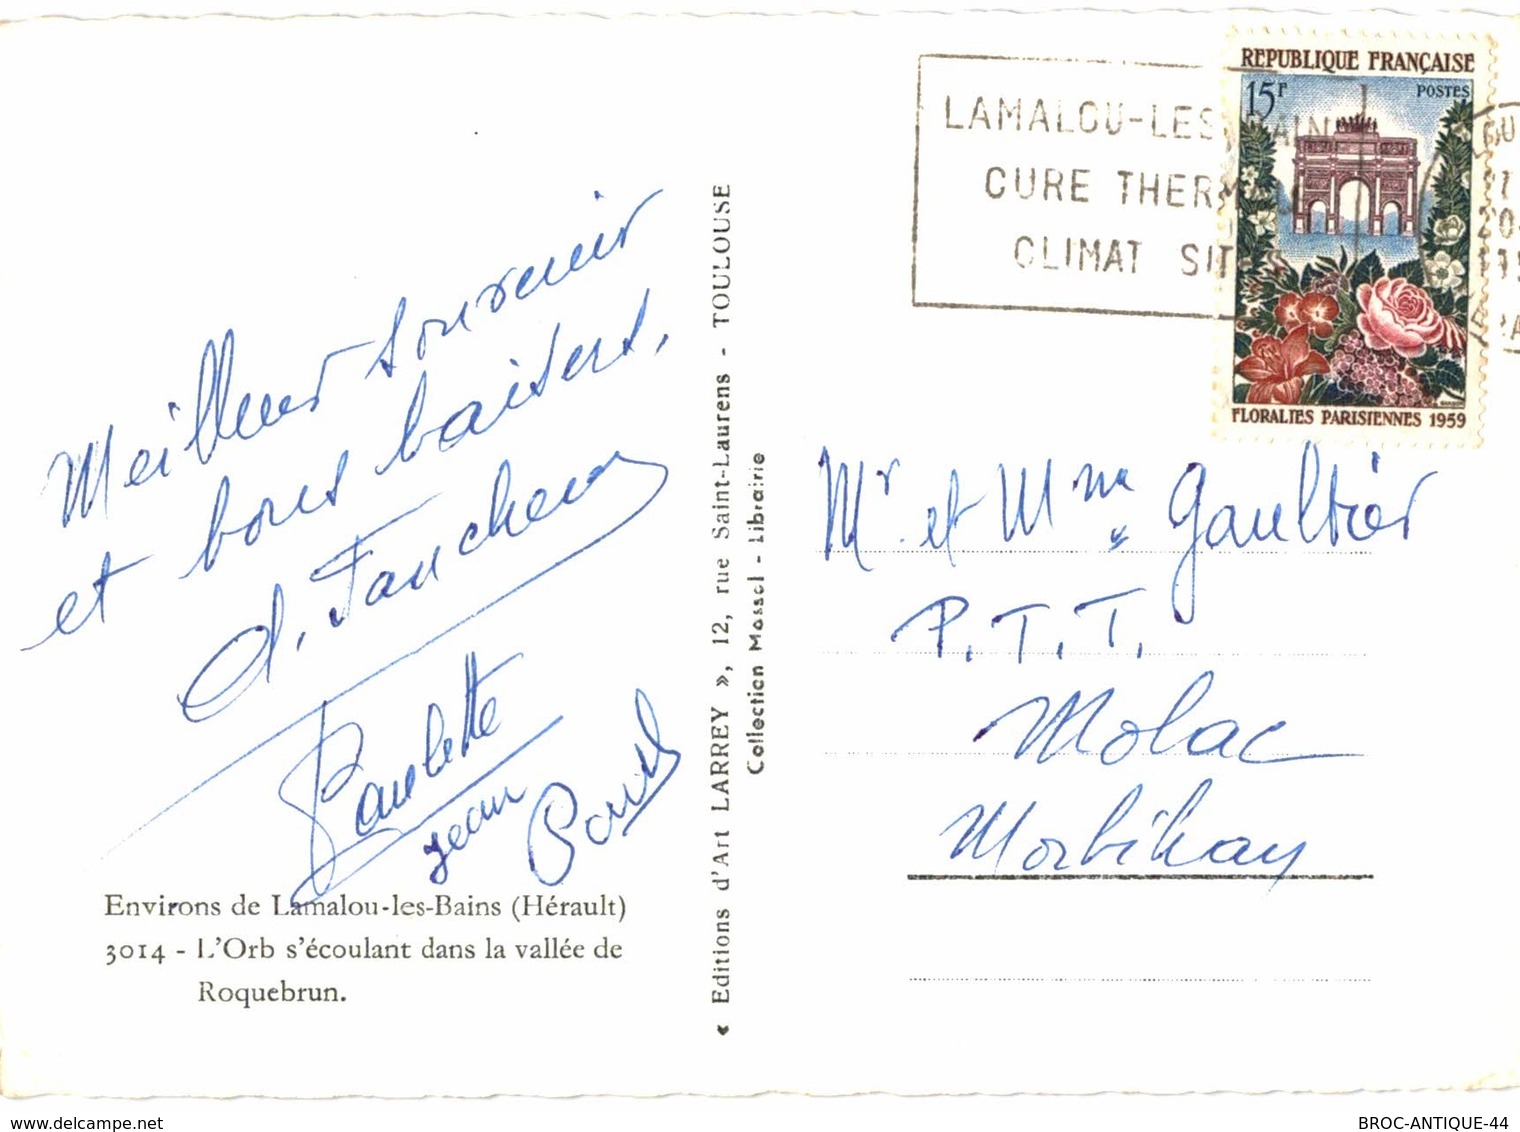 Meilleur souvenir
et bons baisers.
Paulette
Jean
Environs de Lamalou-les-Bains (Hérault)
3014 - L'Orb s'écoulant dans la vallée de
Roquebrun.
« Editions d'Art LARREY », 12, rue Saint-Laurens - TOULOUSE
Collection Massol - Librairie
LAMALOU-LES-BAINS
CURE THERMALE
CLIMAT SITES
REPUBLIQUE FRANÇAISE
15F POSTES
FLORALIES PARISIENNES 1959
Mr et Mme Gaultier
P.T.T.
Molac
Morbihan
delcampe.net
BROC-ANTIQUE-44